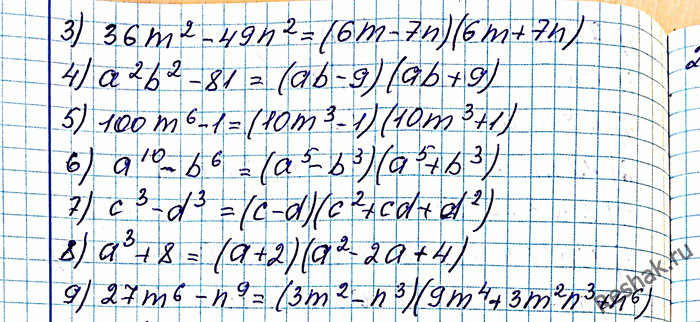 3) 36m² - 49n² = (6m - 7n)(6m + 7n)
4) a²b² - 81 = (ab - 9)(ab + 9)
5) 100m⁶ - 1 = (10m³ - 1)(10m³ + 1)
6) a¹⁰ - b⁶ = (a⁵ - b³)(a⁵ + b³)
7) c³ - d³ = (c - d)(c² + cd + d²)
8) a³ + 8 = (a + 2)(a² - 2a + 4)
9) 27m⁶ - n⁹ = (3m² - n³)(9m⁴ + 3m²n³ + n⁶)
2
reshak.ru